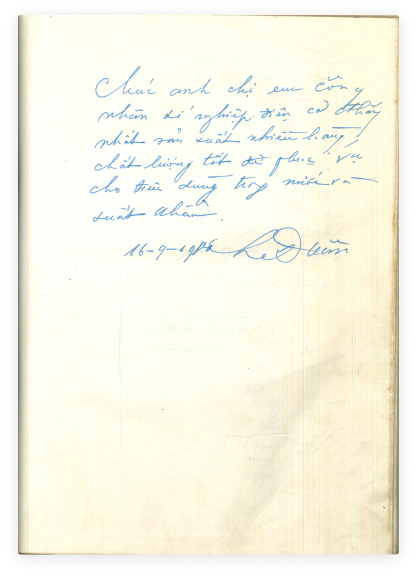 Chúc anh chị em công
nhân xí nghiệp điện cơ thống
nhất sản xuất nhiều hàng,
chất lượng tốt để phục vụ
cho tiêu dùng trong nước và
xuất khẩu.
16-9-1976 Lê Duẩn